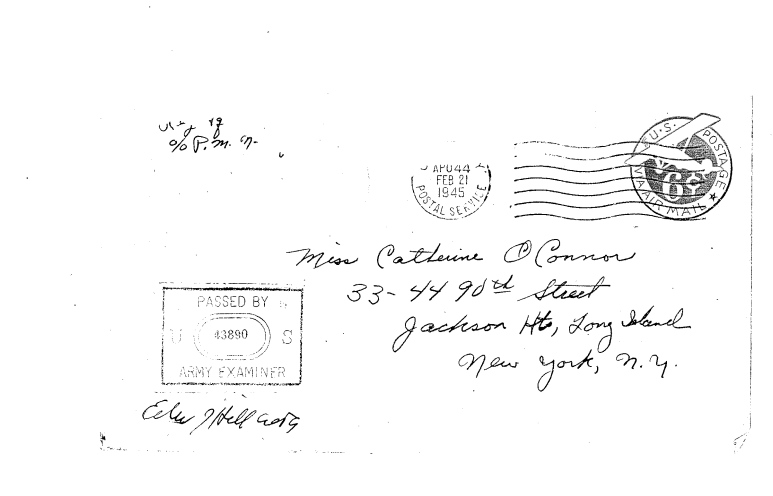 c/o P.M. N.
APO 44
FEB 21
1945
POSTAL SERVICE
U.S. POSTAGE
6¢
VIA AIR MAIL
Miss Catherine O'Connor
33-44 90th Street
Jackson Hts, Long Island
New York, N.Y.
PASSED BY
U 43890 S
ARMY EXAMINER